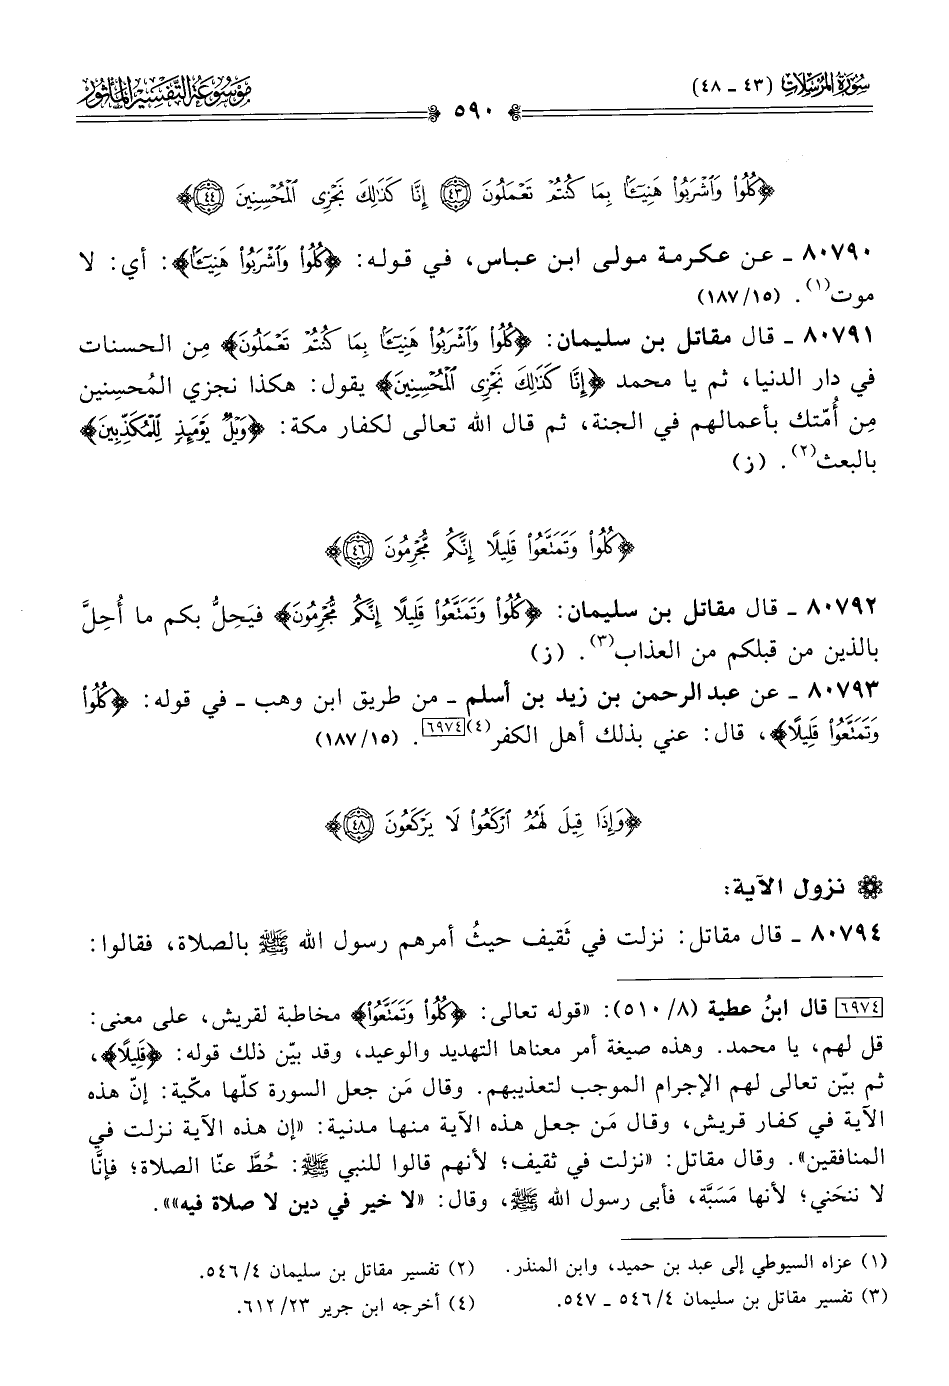 سورة المرسلات (٤٣ - ٤٨)
٥٩٠
موسوعة التفسير المأثور
﴿كُلُوا۟ وَٱشْرَبُوا۟ هَنِيٓـًٔۢا بِمَا كُنتُمْ تَعْمَلُونَ ٤٣ إِنَّا كَذَٰلِكَ نَجْزِى ٱلْمُحْسِنِينَ ٤٤﴾
٨٠٧٩٠ - عن عكرمة مولى ابن عباس، في قوله: ﴿كُلُوا۟ وَٱشْرَبُوا۟ هَنِيٓـًٔۢا﴾: أي: لا
موت(١). (١٨٧/١٥)
٨٠٧٩١ - قال مقاتل بن سليمان: ﴿كُلُوا۟ وَٱشْرَبُوا۟ هَنِيٓـًٔۢا بِمَا كُنتُمْ تَعْمَلُونَ﴾ مِن الحسنات
في دار الدنيا، ثم يا محمد ﴿إِنَّا كَذَٰلِكَ نَجْزِى ٱلْمُحْسِنِينَ﴾ يقول: هكذا نجزي المُحسِنين
مِن أُمّتك بأعمالهم في الجنة، ثم قال الله تعالى لكفار مكة: ﴿وَيْلٌ يَوْمَئِذٍ لِّلْمُكَذِّبِينَ﴾
بالبعث(٢). (ز)
﴿كُلُوا۟ وَتَمَتَّعُوا۟ قَلِيلًا إِنَّكُم مُّجْرِمُونَ ٤٦﴾
٨٠٧٩٢ - قال مقاتل بن سليمان: ﴿كُلُوا۟ وَتَمَتَّعُوا۟ قَلِيلًا إِنَّكُم مُّجْرِمُونَ﴾ فيَحِلُّ بكم ما أُحِلَّ
بالذين من قبلكم من العذاب(٣). (ز)
٨٠٧٩٣ - عن عبد الرحمن بن زيد بن أسلم - من طريق ابن وهب - في قوله: ﴿كُلُوا۟
وَتَمَتَّعُوا۟ قَلِيلًا﴾، قال: عني بذلك أهل الكفر(٤)[٦٩٧٤]. (١٨٧/١٥)
﴿وَإِذَا قِيلَ لَهُمُ ٱرْكَعُوا۟ لَا يَرْكَعُونَ ٤٨﴾
نزول الآية:
٨٠٧٩٤ - قال مقاتل: نزلت في ثَقيف حيثُ أمرهم رسول الله ﷺ بالصلاة، فقالوا:
[٦٩٧٤] قال ابنُ عطية (٨/ ٥١٠): «قوله تعالى: ﴿كُلُوا۟ وَتَمَتَّعُوا۟﴾ مخاطبة لقريش، على معنى:
قل لهم، يا محمد. وهذه صيغة أمر معناها التهديد والوعيد، وقد بيّن ذلك قوله: ﴿قَلِيلًا﴾،
ثم بيّن تعالى لهم الإجرام الموجب لتعذيبهم. وقال مَن جعل السورة كلّها مكّية: إنّ هذه
الآية في كفار قريش، وقال مَن جعل هذه الآية منها مدنية: «إن هذه الآية نزلت في
المنافقين». وقال مقاتل: «نزلت في ثقيف؛ لأنهم قالوا للنبي ﷺ: حُطَّ عنّا الصلاة؛ فإنَّا
لا ننحَني؛ لأنها مَسَبَّة، فأبى رسول الله ﷺ، وقال: «لا خير في دين لا صلاة فيه»».
(١) عزاه السيوطي إلى عبد بن حميد، وابن المنذر.
(٢) تفسير مقاتل بن سليمان ٤/ ٥٤٦.
(٣) تفسير مقاتل بن سليمان ٤/ ٥٤٦ - ٥٤٧.
(٤) أخرجه ابن جرير ٢٣/ ٦١٢.